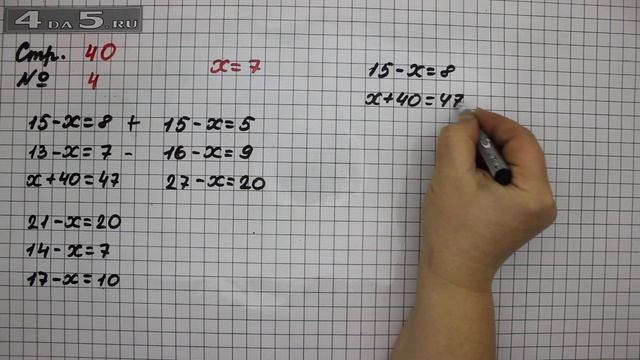 4 DA 5.RU
Стр. 40
№ 4
x = 7
15 - x = 8 +
13 - x = 7 -
x + 40 = 47
15 - x = 5
16 - x = 9
27 - x = 20
21 - x = 20
14 - x = 7
17 - x = 10
15 - x = 8
x + 40 = 47